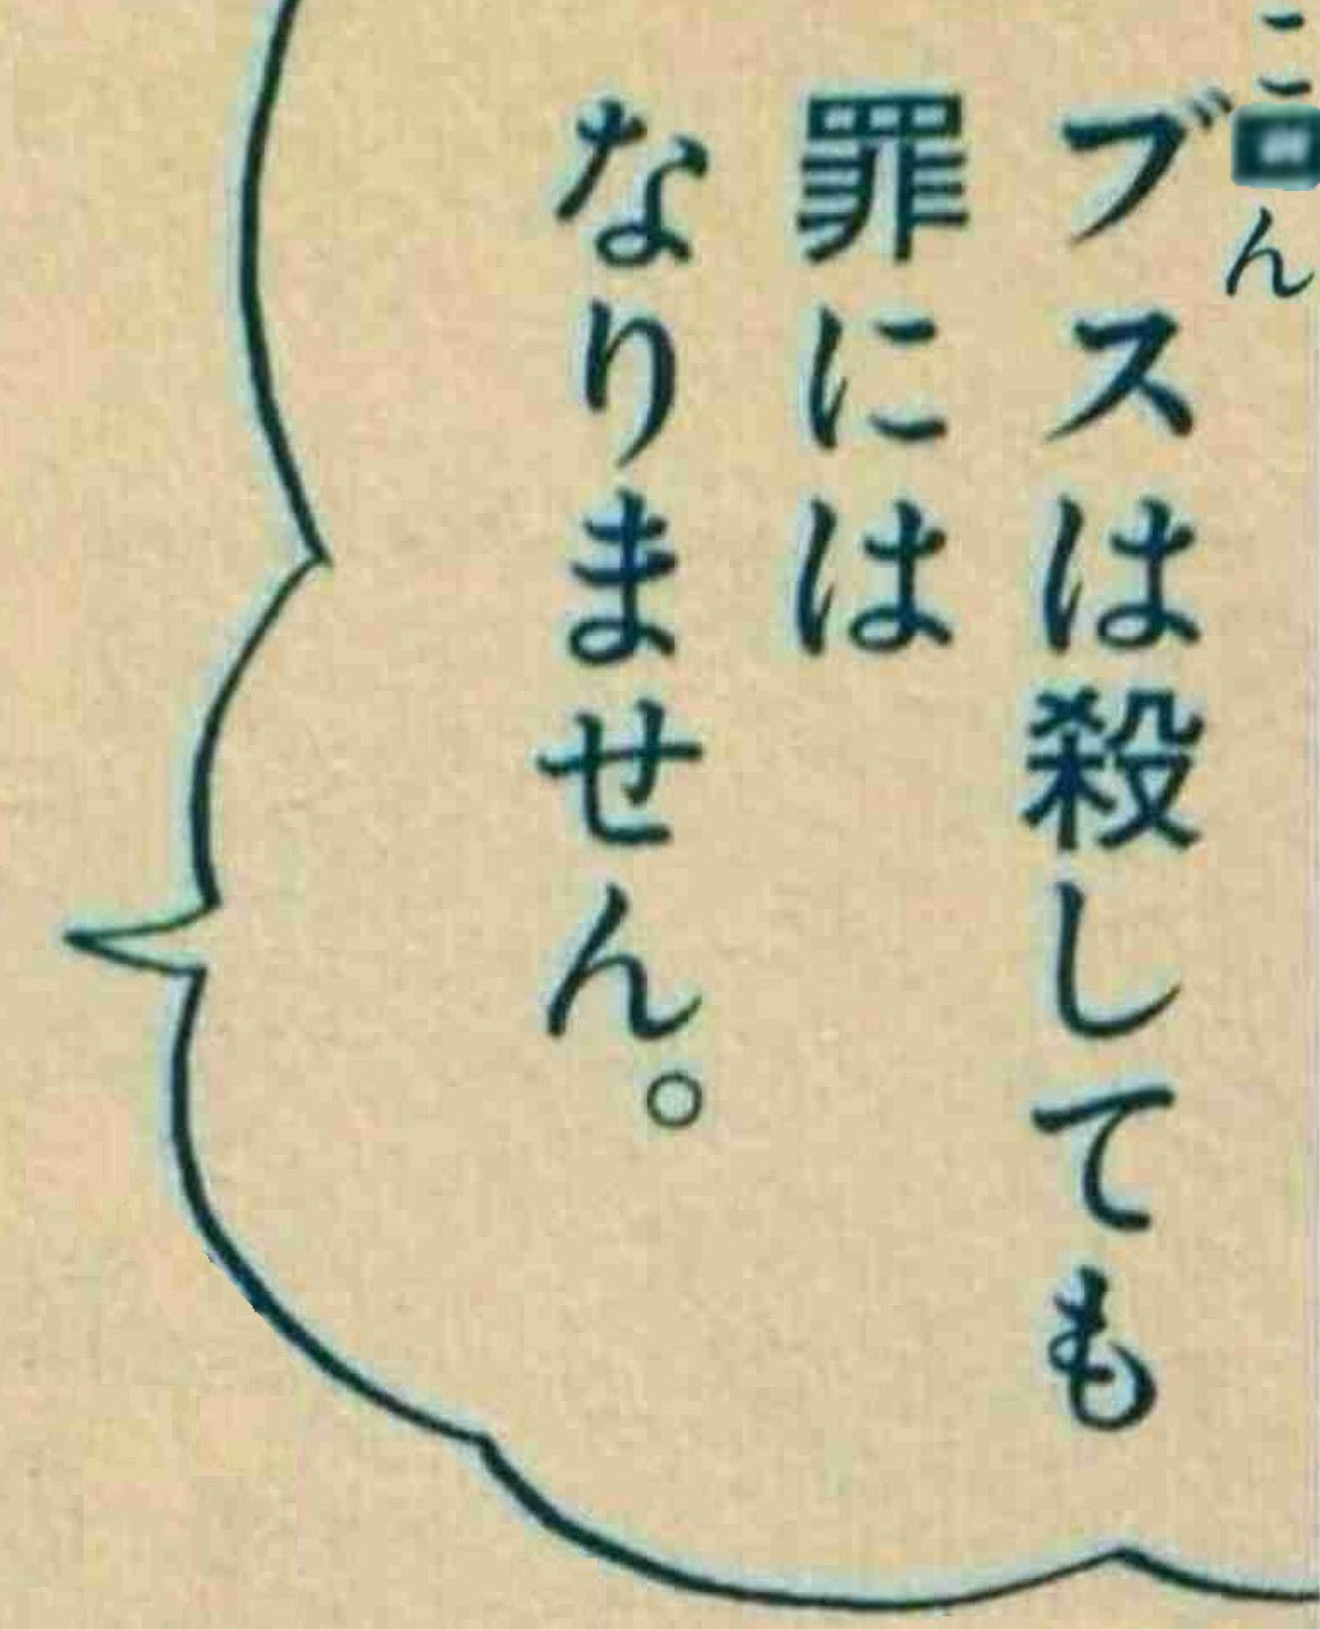 ブスは殺しても
罪には
なりません。